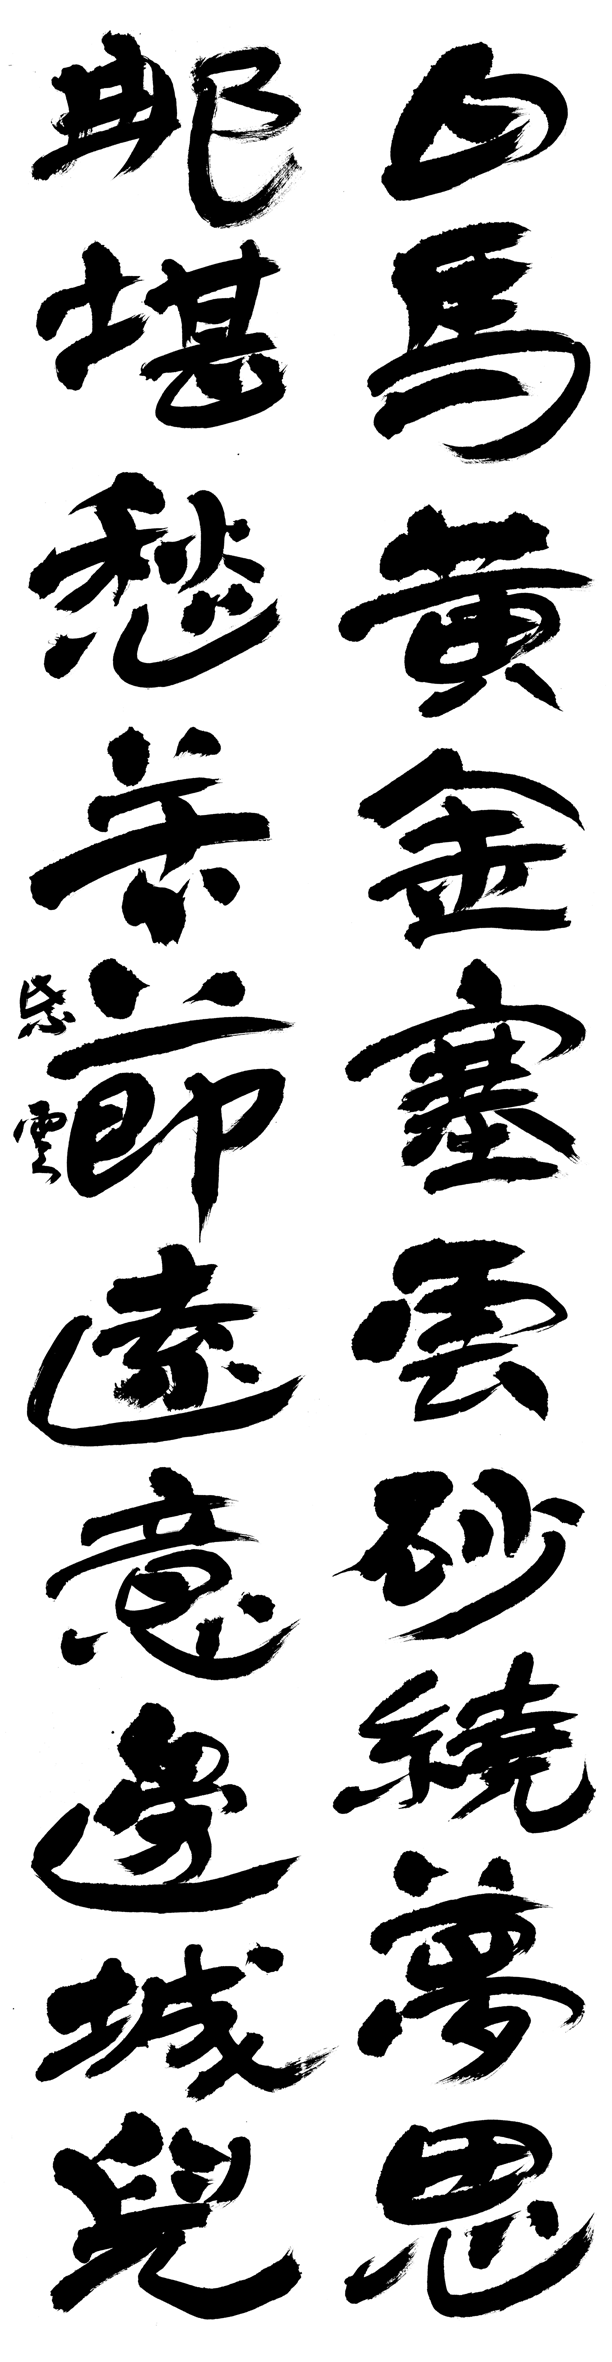 白馬黄金塞雲砂繞夢思
那堪愁苦節遠意邊城兒
紫雲